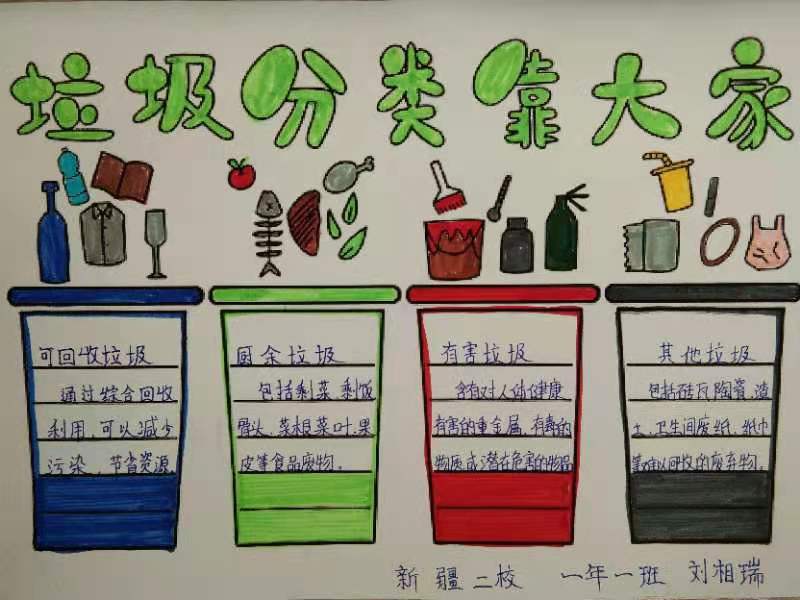 垃圾分类靠大家
可回收垃圾
通过综合回收
利用、可以减少
污染、节省资源
厨余垃圾
包括剩菜、剩饭
骨头、菜根菜叶、果
皮等食品废物。
有害垃圾
含有对人体健康
有害的重金属、有毒的
物质或潜在危害的物品
其他垃圾
包括砖瓦陶瓷、渣
土、卫生间废纸、纸巾
等难以回收的废弃物。
新疆二校 一年一班 刘相瑞